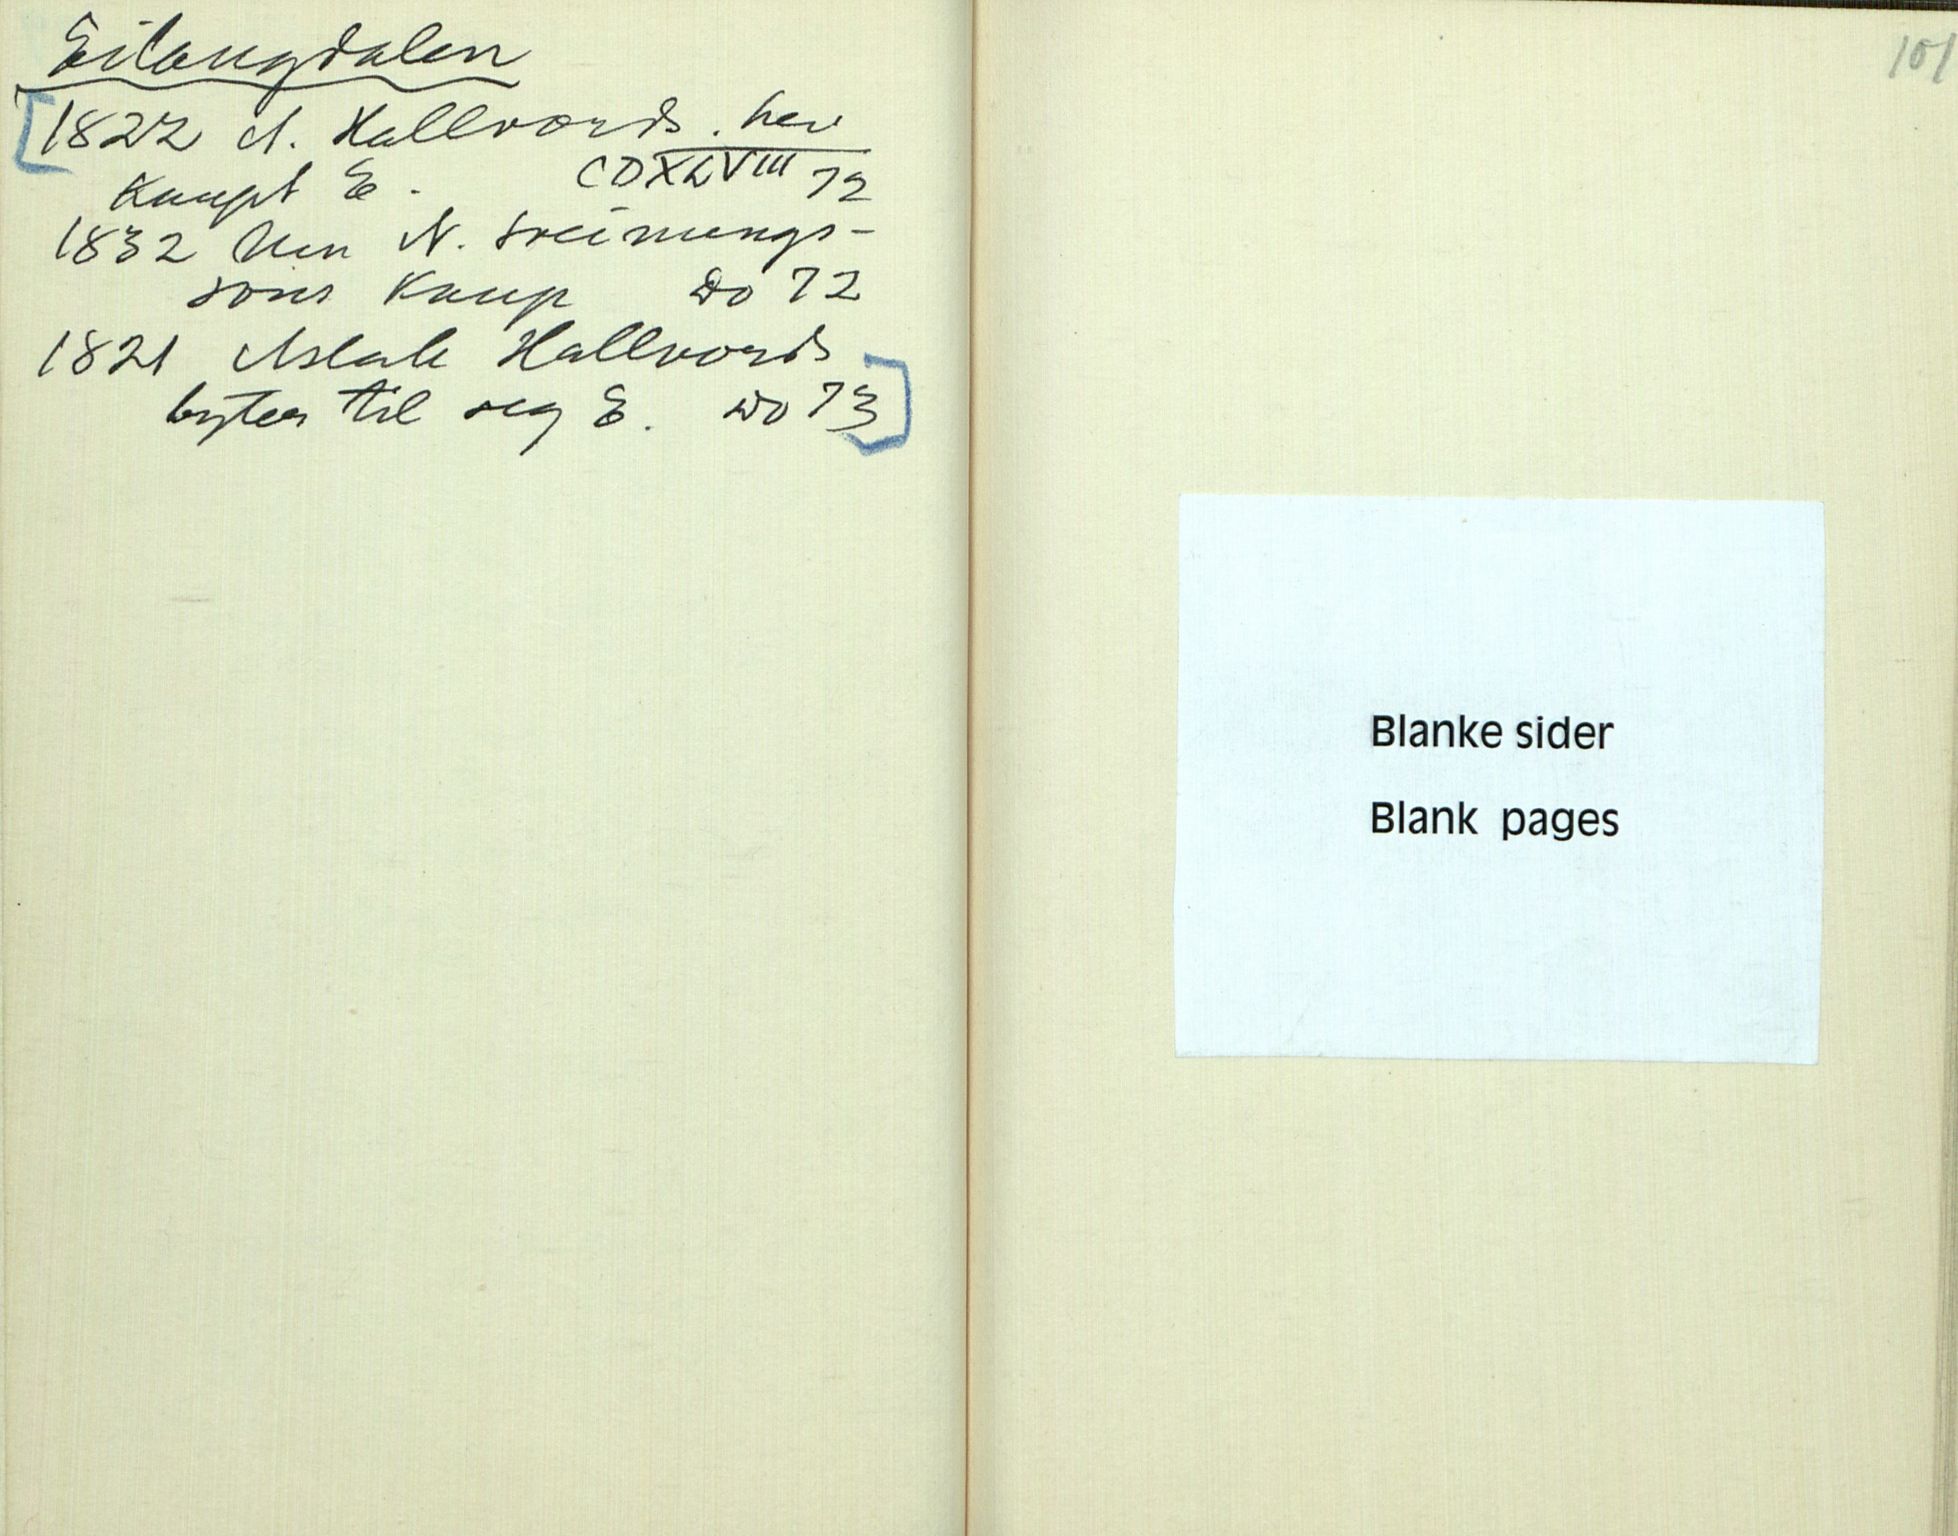 Eilaugdalen
[1822 A. Hallvords. hev
kaupt E. CDXLVIII 72
1832 Um N. Sveinungs-
sons kaup Do 72
1821 Aslak Hallvords
byter til seg E. Do 73]
101
Blanke sider
Blank pages